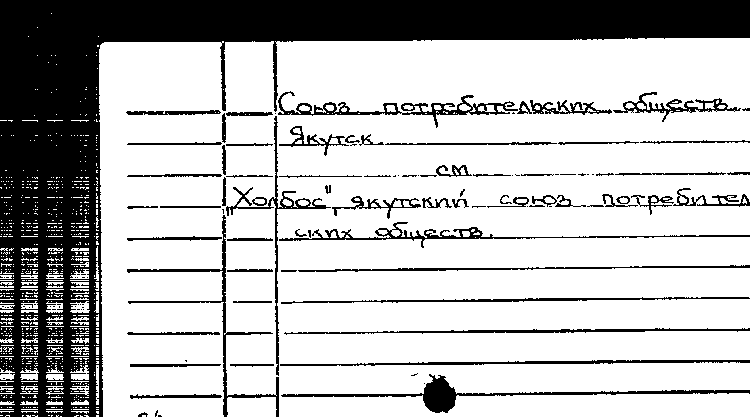 Союз потребительских обществ.
Якутск.
см
„Холбос", якутский союз потребител
ских обществ.